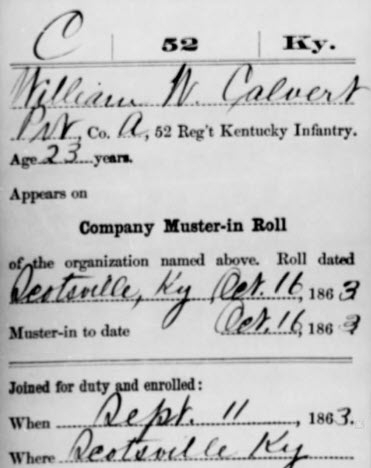 C | 52 | Ky.
William W Calvert
Pvt, Co. A, 52 Reg't Kentucky Infantry.
Age 23 years.
Appears on
Company Muster-in Roll
of the organization named above. Roll dated
Scotsville, Ky Oct. 16, 1863
Muster-in to date Oct. 16, 1863
Joined for duty and enrolled:
When Sept. 11, 1863.
Where Scotsville Ky